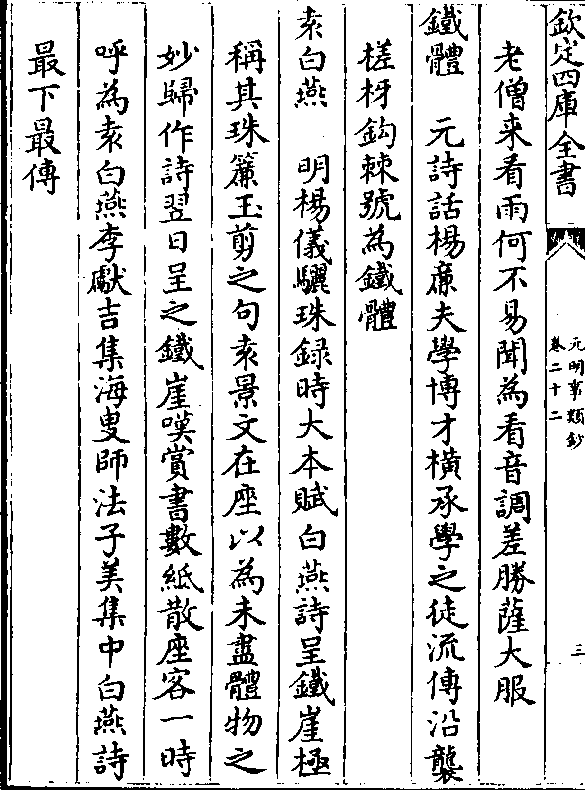 欽定四庫全書
元明事類鈔
卷二十二
三
老僧來看雨何不易聞為看音調差勝薩大服
鐵體　元詩話楊亷夫學博才橫承學之徒流傳沿襲
槎枒鈎棘號為鐵體
袁白燕　明楊儀驪珠録時大本賦白燕詩呈鐵崖極
稱其珠簾玉剪之句袁景文在座以為未盡體物之
妙歸作詩翌日呈之鐵崖嘆賞書數紙散座客一時
呼為袁白燕李獻吉集海叟師法子美集中白燕詩
最下最傳